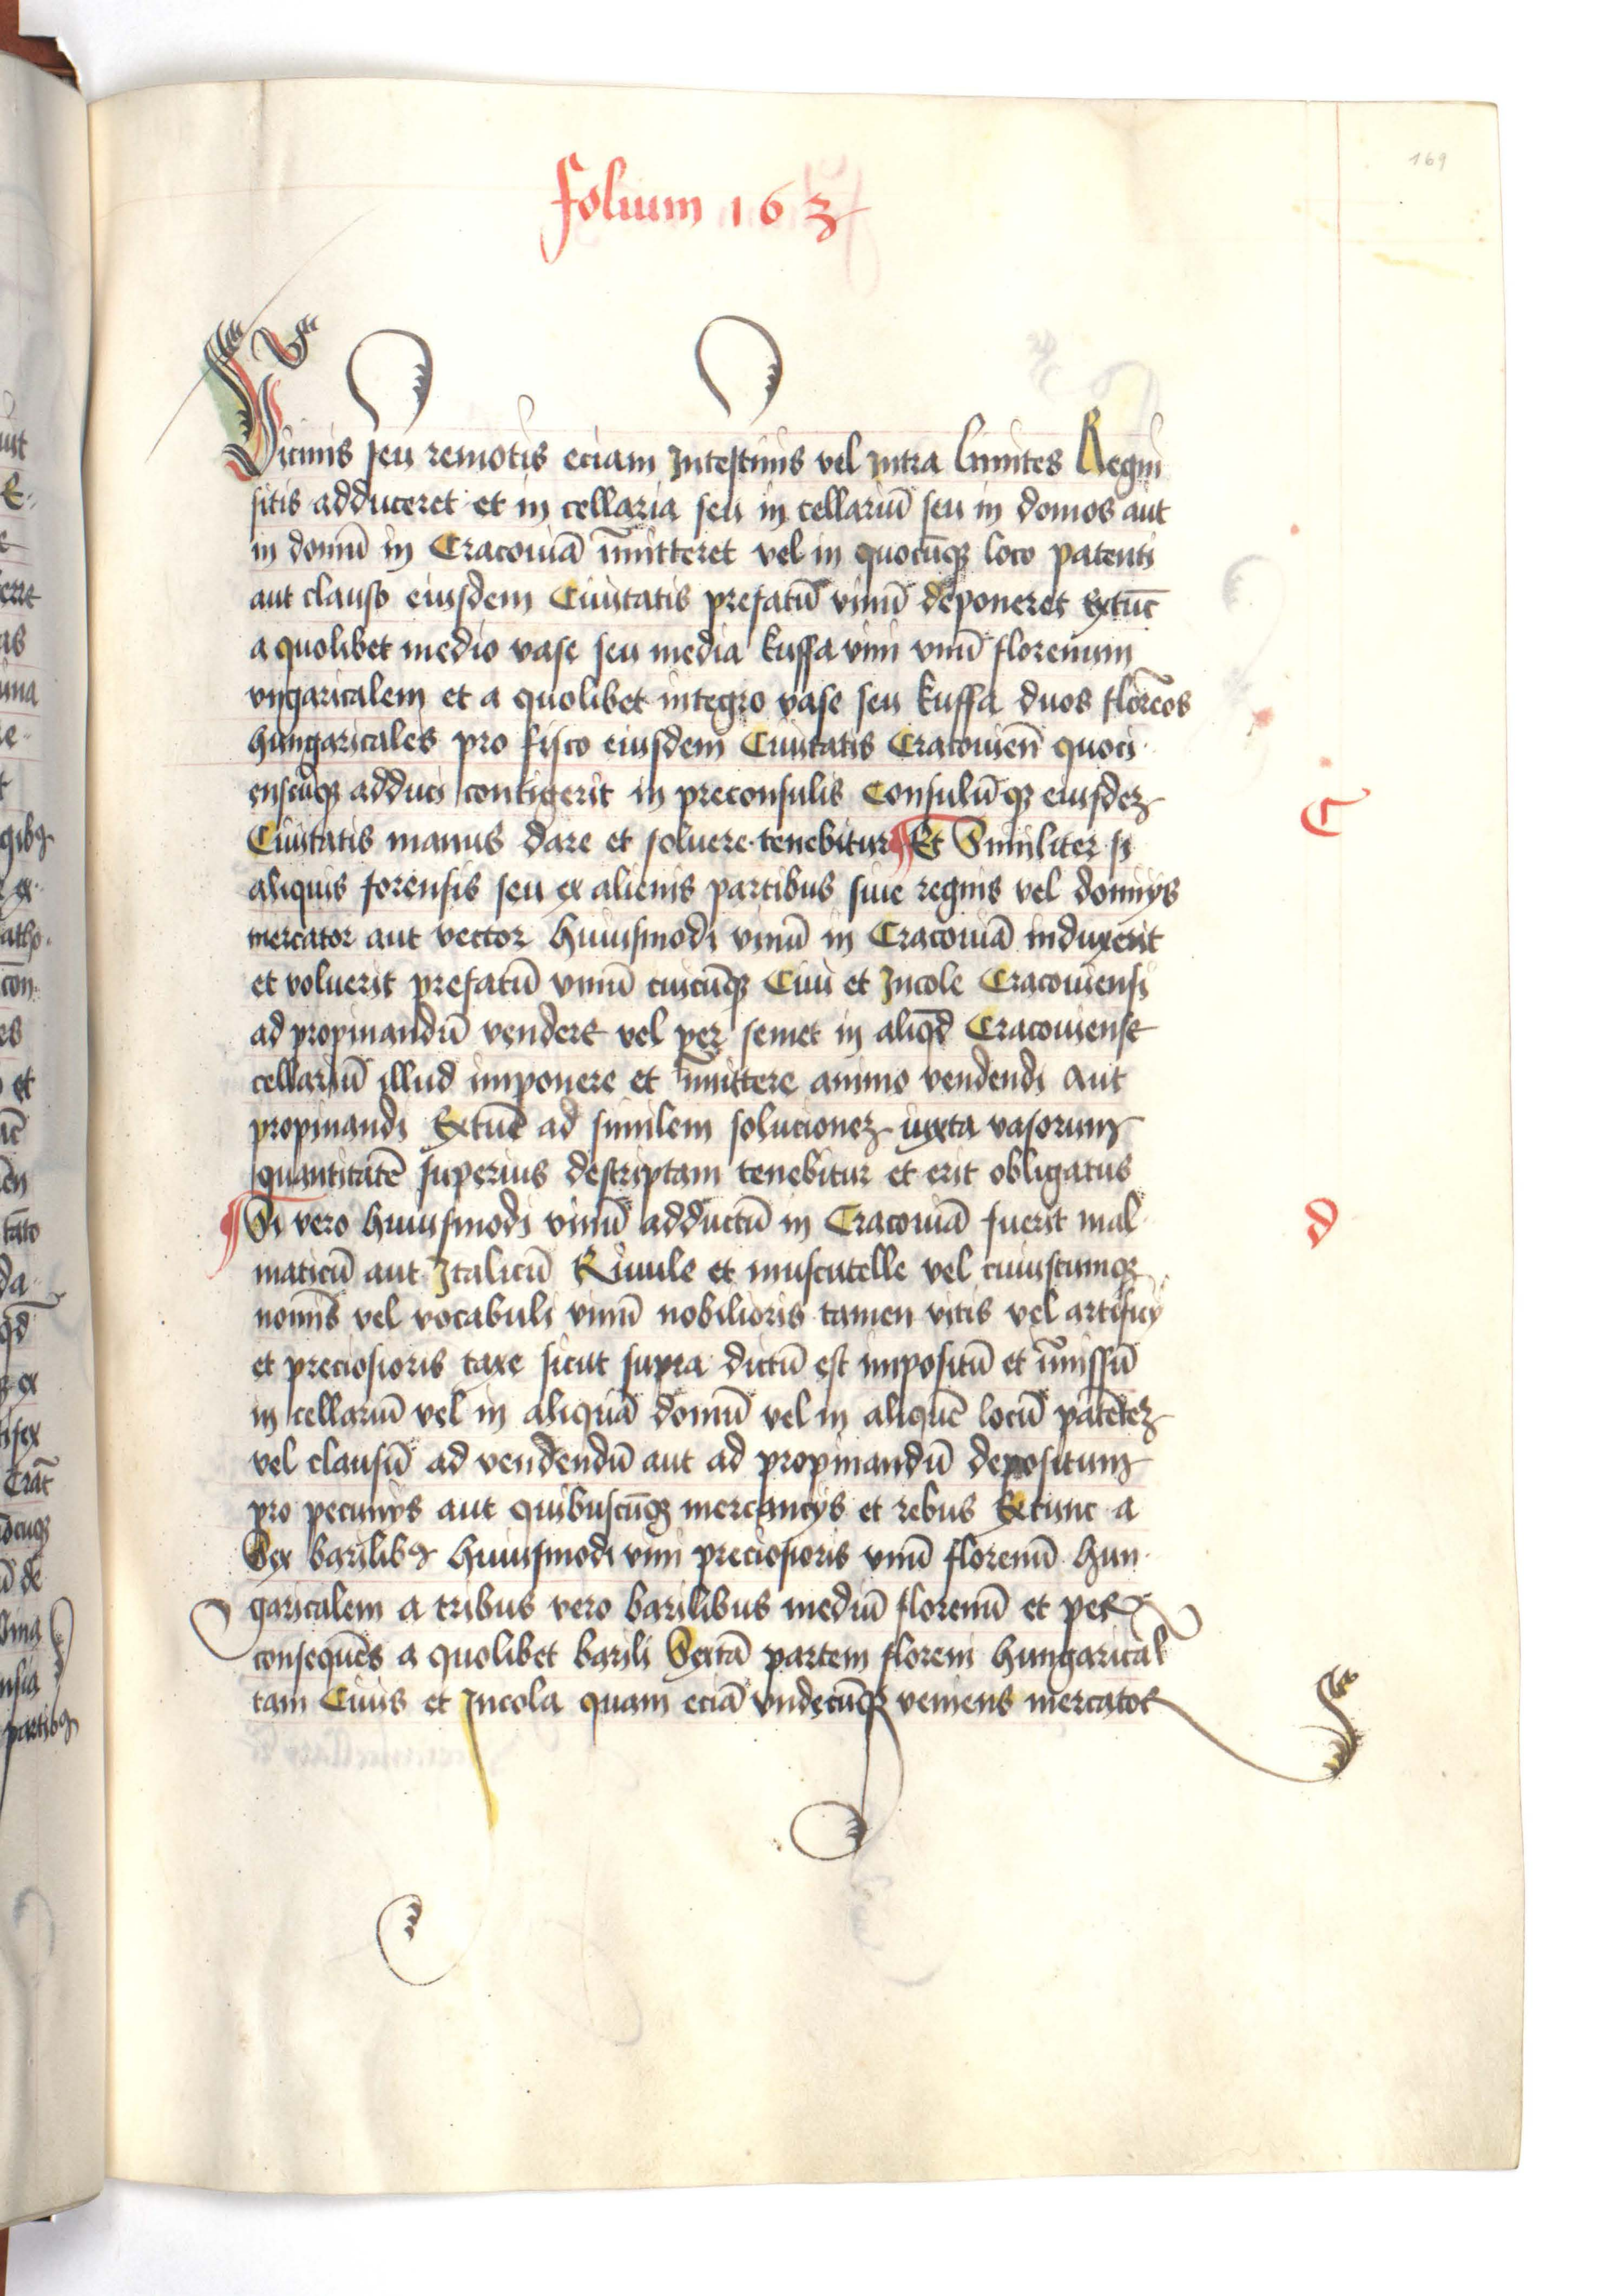 169
folium 163
Vicinis seu remotis eciam Intestinis vel Intra limites Regni
sitis adduceret et in cellaria seu in cellariū seu in domos aut
in domū in Cracouiā īmitteret vel in quocūqꝫ loco patenti
aut clauso eiusdem Ciuitatis prefatū vinū deponeret Extūc
a quolibet medio vase seu media kuffa vini vnū florenum
vngaricalem et a quolibet integro vase seu kuffa duos floreōs
hungaricales pro fisco eiusdem Ciuitatis Cracouien̄ quoci
enscūqꝫ adduci contigerit in preconsulis Consulūqꝫ eiusdeꝫ
C
Ciuitatis manus dare et soluere tenebitur ¶ Et Similiter si
aliquis forensis seu ex alienis partibus siue regnis vel dominys
mercator aut vector huiusmodi vinū in Cracouiā induxerit
et voluerit prefatū vinū cuicūqꝫ Ciui et Incole Cracouiensi
ad propinandū vendere vel per semet in aliqd̄ Cracouiense
cellariū illud imponere et īmittere animo vendendi Aut
propinandi Extūc ad similem solucioneꝫ iuxta vasorum
quantitatē superius descriptam tenebitur et erit obligatus
¶ Si vero huiusmodi vinū adductū in Cracouiā fuerit mal
d
maticū aut Italicū Riuule et muscatelle vel cuiuscumqꝫ
nomīs vel vocabuli vinū nobilioris tamen vitis vel artificy
et preciosioris taxe sicut supra dictū est impositū et īmissū
in cellariū vel in aliquā domū vel in aliquē locū patēteꝫ
vel clausū ad vendendū aut ad propinandū depositum
pro pecunys aut quibuscūqꝫ mercancys et rebus Extunc a
Sex barilibꝰ huiusmodi vini preciosioris vnū florenū hun
garicalem a tribus vero barilibus mediū florenū et per
consequēs a quolibet barili Sextā partem floreni hungarical
tam Ciuis et Incola quam eciā vndecūqꝫ veniens mercator